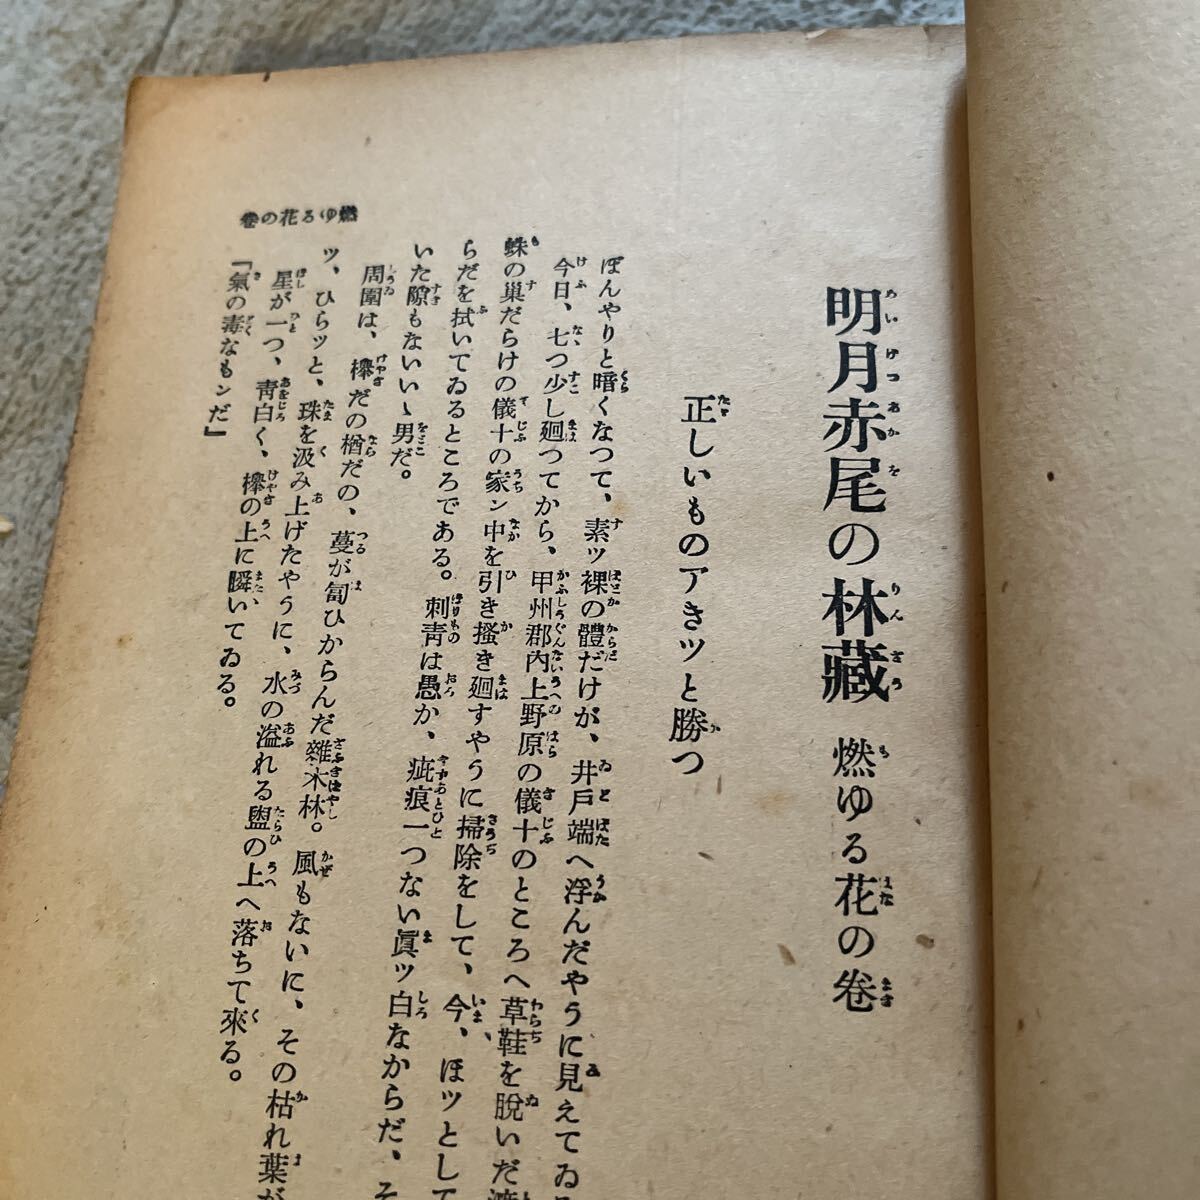 明月赤尾の林藏 燃ゆる花の卷
正しいものアきッと勝つ
ぼんやりと暗くなつて、素ッ裸の體だけが、井戸端へ浮んだやうに見えてゐ
今日、七つ少し廻つてから、甲州郡內上野原の儀十のところへ草鞋を脫いだ
蛛の巢だらけの儀十の家ン中を引き搔き廻すやうに掃除をして、今、ほッとして
らだを拭いてゐるところである。刺靑は愚か、疵痕一つない眞ッ白なからだ、そ
いた隙もないいゝ男だ。
周圍は、欅だの楢だの、蔓が匐ひからんだ雜木林。風もないに、その枯れ葉が
ッ、ひらッと、珠を汲み上げたやうに、水の溢れる盥の上へ落ちて來る。
星が一つ、靑白く、欅の上に瞬いてゐる。
「氣の毒なもンだ」
燃ゆる花の卷